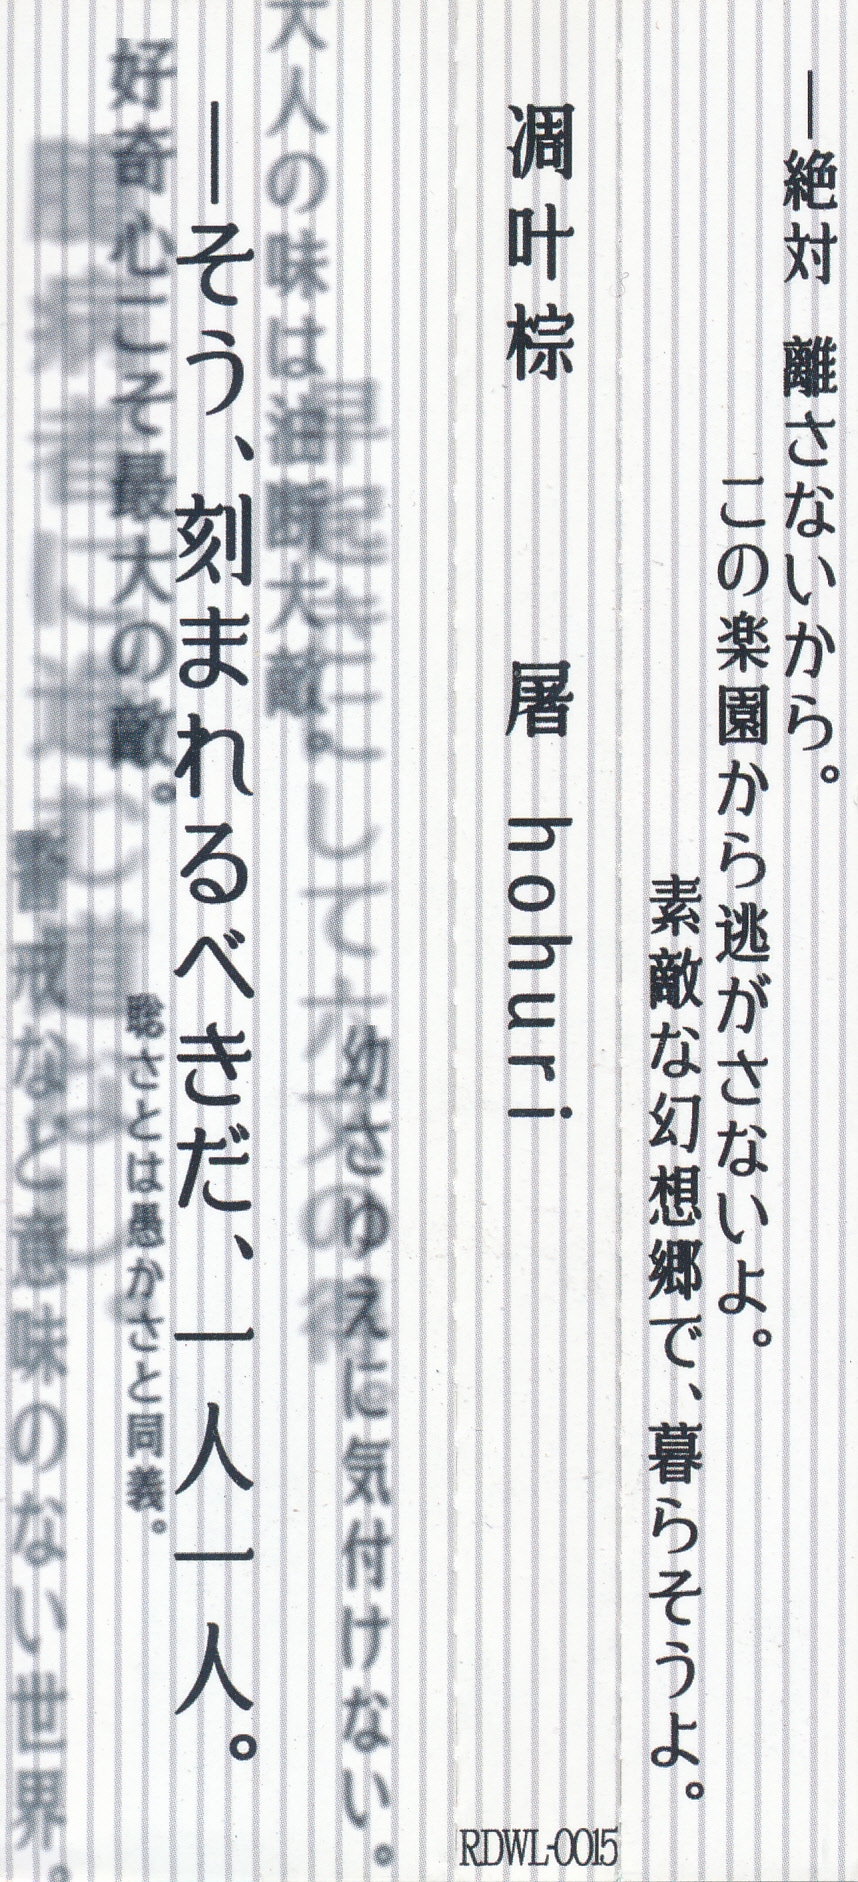 ―絶対 離さないから。
この楽園から逃がさないよ。
素敵な幻想郷で、暮らそうよ。
凋叶棕 屠 hohuri
RDWL-0015
幼さゆえに気付けない。
早起きにして六文の得
大人の味は油断大敵。
―そう、刻まれるべきだ、一人一人。
好奇心こそ最大の敵。
聡さとは愚かさと同義。
警戒など意味のない世界。